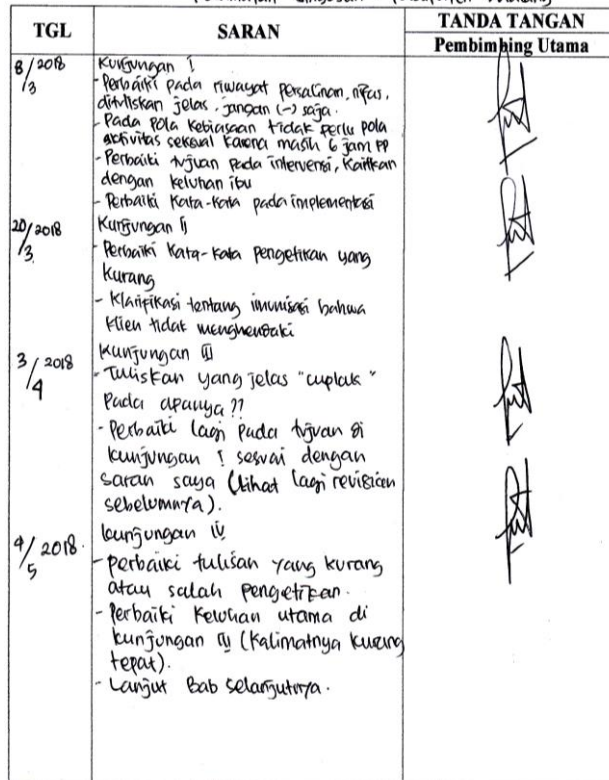 TGL
SARAN
TANDA TANGAN
Pembimbing Utama
8/3 2018
Kunjungan I
- Perbaiki pada riwayat persalinan, nifas,
dituliskan jelas, jangan (-) saja.
- Pada pola kebiasaan tidak perlu pola
aktivitas seksual karena masih 6 jam PP
- Perbaiki tujuan pada intervensi, kaitkan
dengan keluhan ibu
- Perbaiki kata-kata pada implementasi
20/3 2018
Kunjungan II
- Perbaiki kata-kata pengetikan yang
kurang
- Klarifikasi tentang imunisasi bahwa
klien tidak menghendaki
3/4 2018
Kunjungan III
- Tuliskan yang jelas "cuplak"
pada apanya??
- Perbaiki lagi pada tujuan di
kunjungan I sesuai dengan
saran saya (Lihat lagi revisian
sebelumnya).
4/5 2018.
kunjungan IV
- perbaiki tulisan yang kurang
atau salah pengetikan.
- Perbaiki keluhan utama di
kunjungan IV (kalimatnya kurang
tepat).
- Lanjut Bab selanjutnya.